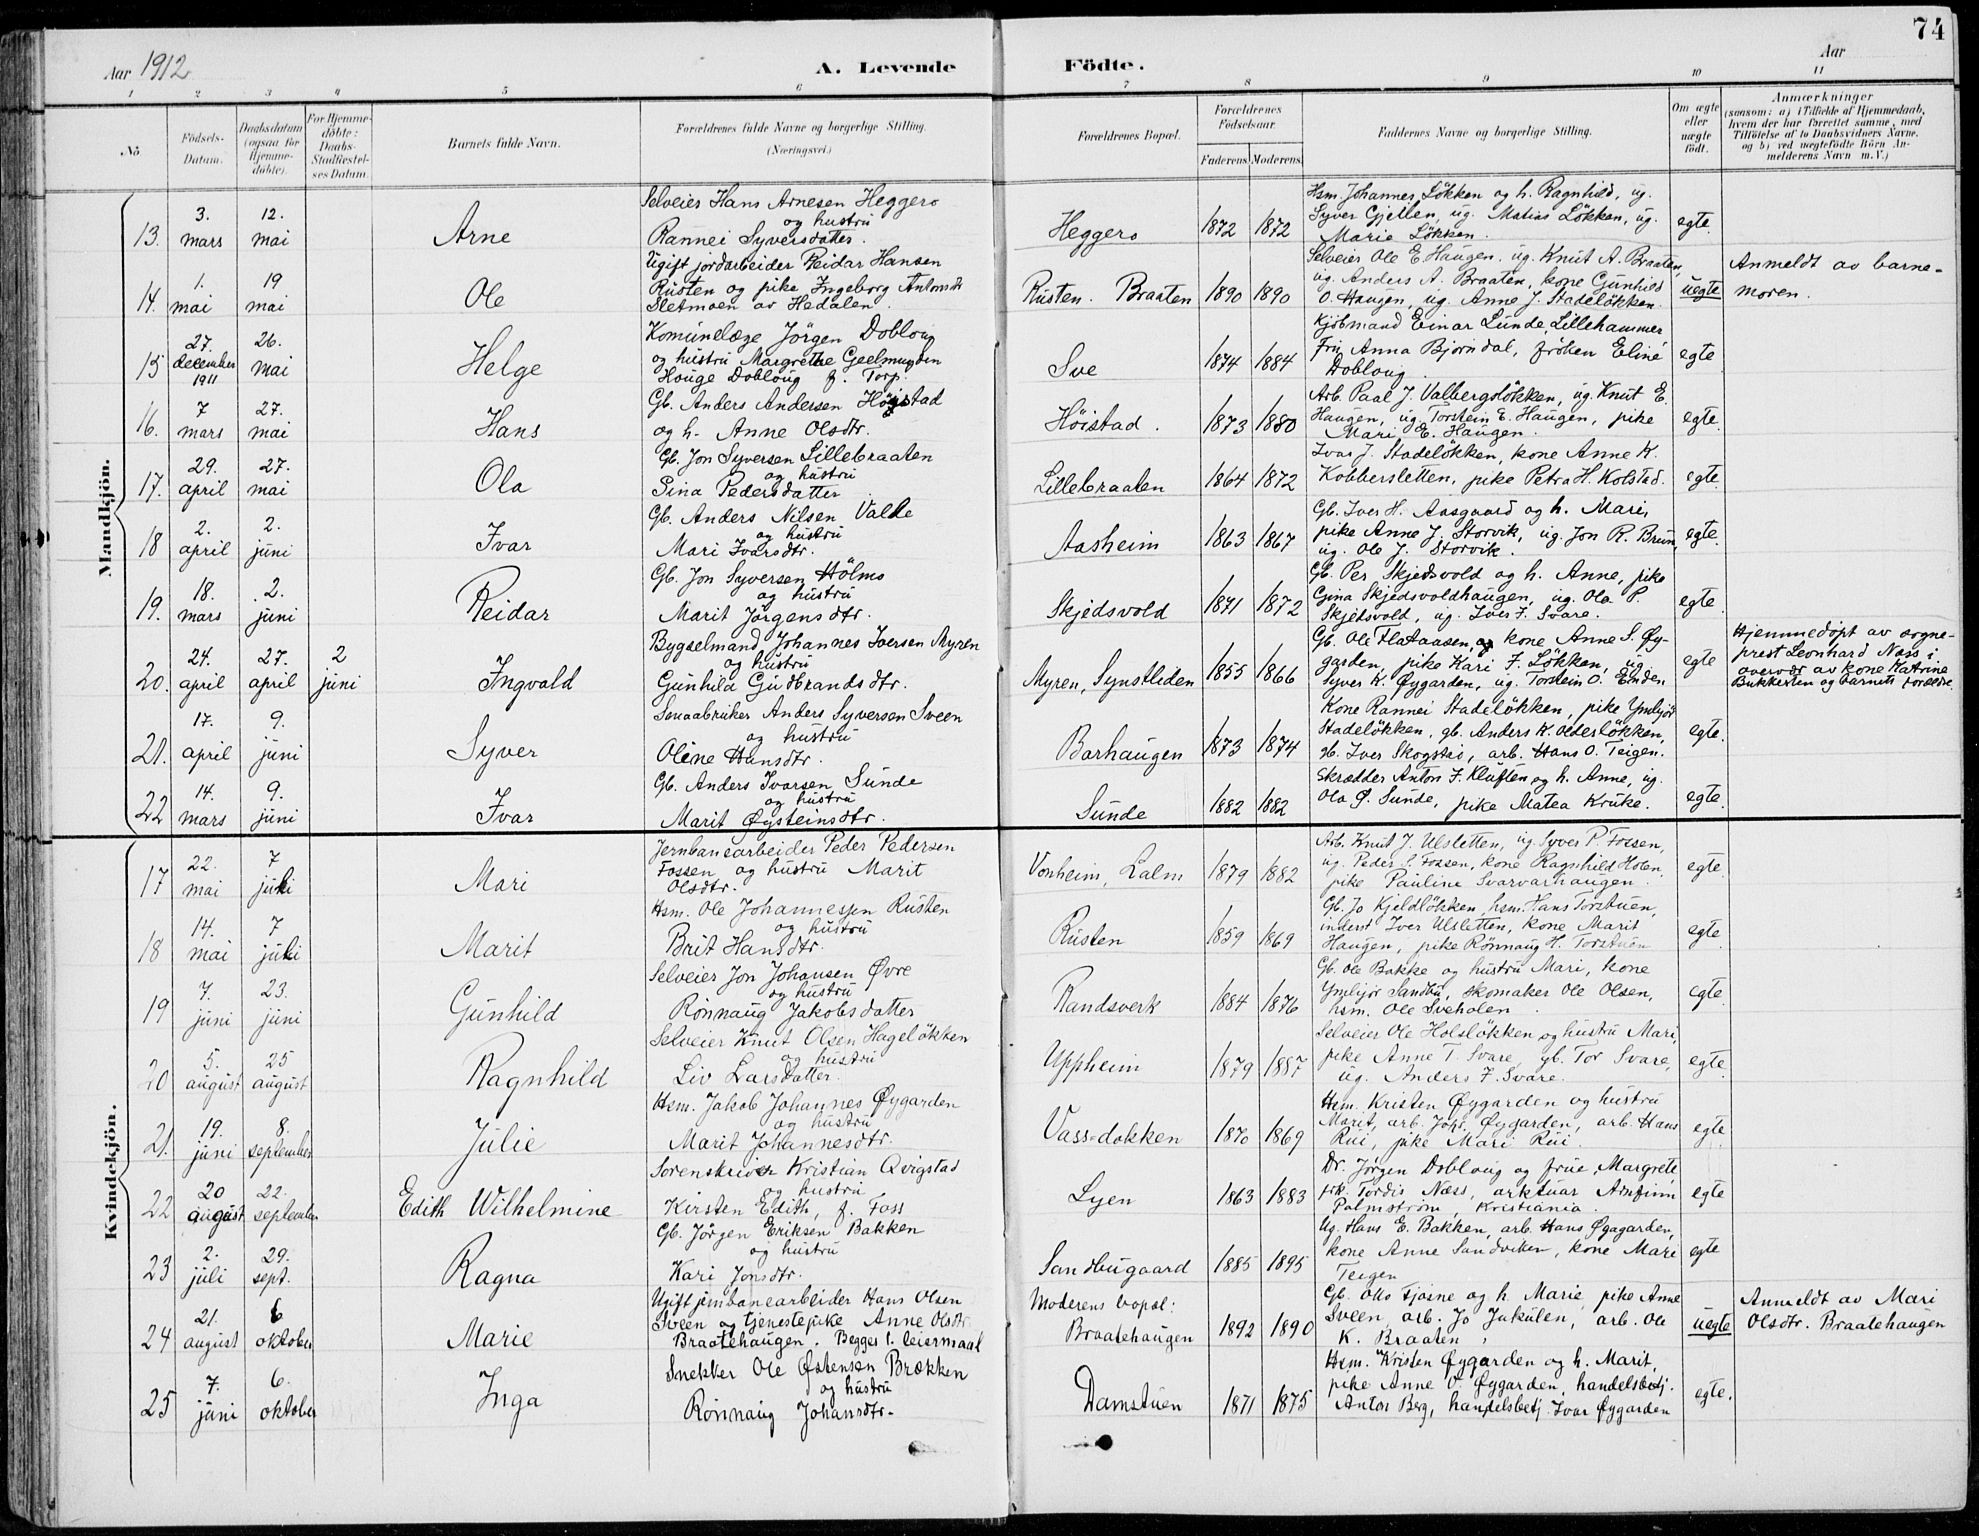 74
Aar 1912
A. Levende Födte.
Aar
1 2 3 4 5 6 7 8 9 10 11
No
Födsels-Datum.
Daabsdatum (ogsaa for Hjemme-døbte).
For Hjemme-døbte: Daabs-Stadfæstel-ses Datum.
Barnets fulde Navn.
Forældrenes fulde Navne og borgerlige Stilling. (Næringsvei.)
Forældrenes Bopæl.
Forældrenes Födselsaar.
Faderens. Moderens.
Faddernes Navne og borgerlige Stilling.
Om ægte eller uægte født.
Anmærkninger
(saasom: a) i Tilfælde af Hjemmedaab,
hvem der har forrettet samme, med
Tilföielse af to Daabsvidners Navne.
og b) ved uægtefödte Börn An-
melderens Navn m.V.)
Mandkjön.
13. 3. mars 12. mai Arne
Selveier Hans Arnesen Heggero
og hustru
Rannei Syversdatter.
Heggero 1872 1872
Hsm. Johannes Løkken og h. Ragnhild, ug.
Syver Gjetlen, ug. Matias Løkken, ug.
Marie Løkken.
egte.
14. 1. mai 19 mai Ole
Ugift jordarbeider Reidar Hansen
Rusten og pike Ingeborg Antonsdtr
Sletmoen av Hedalen.
Rusten. Braaten 1890 1890
Selveier Ole E. Haugen, ug. Knut A. Braaten,
ug. Anders A. Braaten, kone Gunhild
O. Haugen, ug. Anne J. Stadeløkken.
uegte
Anmeldt av barne-
moren.
15 27. december 1911 26. mai Helge
Komunelæge Jörgen Dobloug
og hustru Margrethe Geelmuyden
Houge Dobloug f. Torp.
Sve 1874 1884
Kjöbmand Einar Lunde, Lillehammer
Fru Anna Bjorndal, fröken Eline
Dobloug.
egte
16. 7 mars 27. mai Hans
Gb. Anders Andersen Høistad
og h. Anne Olsdtr.
Höistad. 1873 1880
Arb. Paal J. Valbergsløkken, ug. Knut E.
Haugen, ug. Torstein E. Haugen, pike
Mari E. Haugen.
egte.
17. 29. april 27. mai Ola
Gb. Jon Syversen Lillebraaten
og hustru
Sina Pedersdatter
Lillebraaten 1864 1872
Ivar J. Stadeløkken, kone Anne K.
Kobbersletten, pike Petra H. Kolstad.
egte.
18 2. april 2. juni Ivar
Gb. Anders Nilsen Valle
og hustru
Mari Ivarsdtr.
Aasheim 1863 1867
Gb. Iver H. Aasgaard og h. Mari,
pike Anne J. Storvik, ug. Jon R. Brun,
ug. Ole J. Storvik.
egte.
19. 18. mars 2. juni Reidar
Gb. Jon Syversen Holmo
og hustru
Marit Jørgensdtr.
Skjedsvold 1871 1872
Gb. Per Skjedsvold og h. Anne, pike
Gina Skjedsvoldhaugen, ug. Ola P.
Skjedsvold, ug. Iver F. Svare.
egte
20. 24. april 27. april 2 juni Ingvald
Bygselmand Johannes Iversen Myren
og hustru
Gunhild Gudbrandsdtr.
Myren, Synstlien 1855 1866
Gb. Ole Flataasen, og kone Anne S. Øy-
garden, pike Kari F. Løkken, ug.
Syver K. Øygarden, ug. Torstein O. Enden
egte
Hjemmedöpt av sogne-
prest Leonhard Næss i
overvær av kone Katrine
Bukkesten og barnets forældre.
21. 17. april 9. juni Syver
Anders Syversen Sveen
og hustru
Oline Hansdtr.
Barhaugen 1873 1874
Kone Rannei Stadeløkken, pike Ymbjør
Stadeløkken, gb. Anders K. Olderløkken,
gb. Iver Skogstad, arb. Hans O. Teigen.
egte.
22 14. mars 9. juni Ivar
Gb. Anders Ivarsen Sunde
og hustru
Marit Øysteinsdtr.
Sunde 1882 1882
Skrædder Anton F. Kluften og h. Anne, ug.
Ola Ø. Sunde, pike Matea Kruke.
egte.
Kvindekjön.
17 22. mai 7 juli Mari
Jernbanearbeider Peder Pedersen
Fossen og hustru Marit
Olsdtr.
Vonheim, Lalm 1879 1882
Arb. Knut J. Ulsletten, ug. Syver P. Fossen,
ug. Peder S. Fossen, kone Ragnhild Holen,
pike Pauline Svarvarhaugen.
egte.
18 14. mai 7 juli Marit
Hsm. Ole Johannessen Rusten
og hustru
Brit Hansdtr.
Rusten 1859 1869
Gb. Jo Kjeldløkken, hsm. Hans Torstuen,
inderst Iver Ulsletten, kone Marit
Haugen, pike Rønnaug H. Torstuen
egte
19 7. juni 23. juni Gunhild
Selveier Jon Johansen Øvre
og hustru
Rønnaug Jakobsdatter
Randsverk 1884 1876
Gb. Ole Bakke og hustru Mari, kone
Ymbjør Sandbu, skomaker Ole Olsen,
hsm. Ole Sveholen.
egte
20 5. august 25 august Ragnhild
Selveier Knut Olsen Hageløkken
og hustru
Liv Larsdatter.
Uppheim 1879 1887
Selveier Ole Holsløkken og hustru Mari,
pike Anne T. Svare, gb. Tor Svare,
ug. Anders F. Svare.
egte.
21. 19. juni 8. september Julie
Hsm. Jakob Johannes Øygarden
og hustru
Marit Johannesdtr.
Vass=dokken 1870 1869
Hsm. Kristen Øygarden og hustru
Marit, arb. Joh. Øygarden, arb. Hans
Rui, pike Mari Rui.
egte
22 20 august 22. september Edith Wilhelmine
Sorenskriver Kristian Qvigstad
og hustru
Kirsten Edith, f. Foss
Lyen 1863 1883
Dr. Jørgen Dobloug og frue Margrete,
frk. Tordis Næss, arktuar Arnfinn
Palmstrøm, Kristiania.
egte
23 2. juli 29. sept. Ragna
Gb. Jörgen Eriksen Bakken
og hustru
Kari Jonsdtr.
Sandbugaard 1885 1895
Ug. Hans E. Bakken, arb. Hans Øygarden,
kone Anne Sandviken, kone Mari
Teigen
egte
24 21. august 6 oktober Marie
Ugift jernbanearbeider Hans Olsen
Sveen og tjenestepike Anne Olsdtr.
Braatehaugen. Begges 1. leiermaal
Moderens bopæl:
Braatehaugen 1892 1890
Gb. Otto Fjosne og h. Marie, pike Anne
Sveen, arb. Jo Jukulen, arb. Ole
K. Braaten.
uegte
Anmeldt av Mari
Olsdtr. Braatehaugen
25 7. juni 6. oktober Inga
Snekker Ole Østensen Brækken
og hustru
Rønnaug Johansdtr.
Damstuen 1871 1875
Hsm. Kristen Øygarden og h. Marit,
pike Anne O. Øygarden, handelsbetj.
Anton Berg, handelsbetj. Ivar Øygarden
egte.